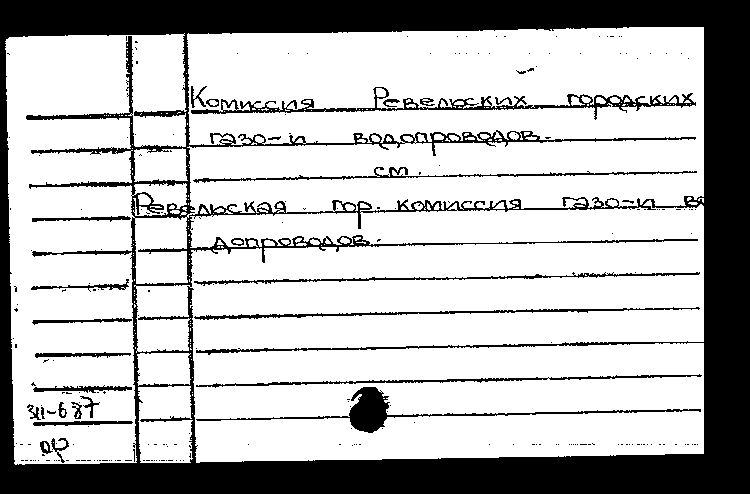 Комиссия Ревельских городских
газо-и водопроводов.
см.
Ревельская гор. комиссия газо-и во
допроводов.
311-687